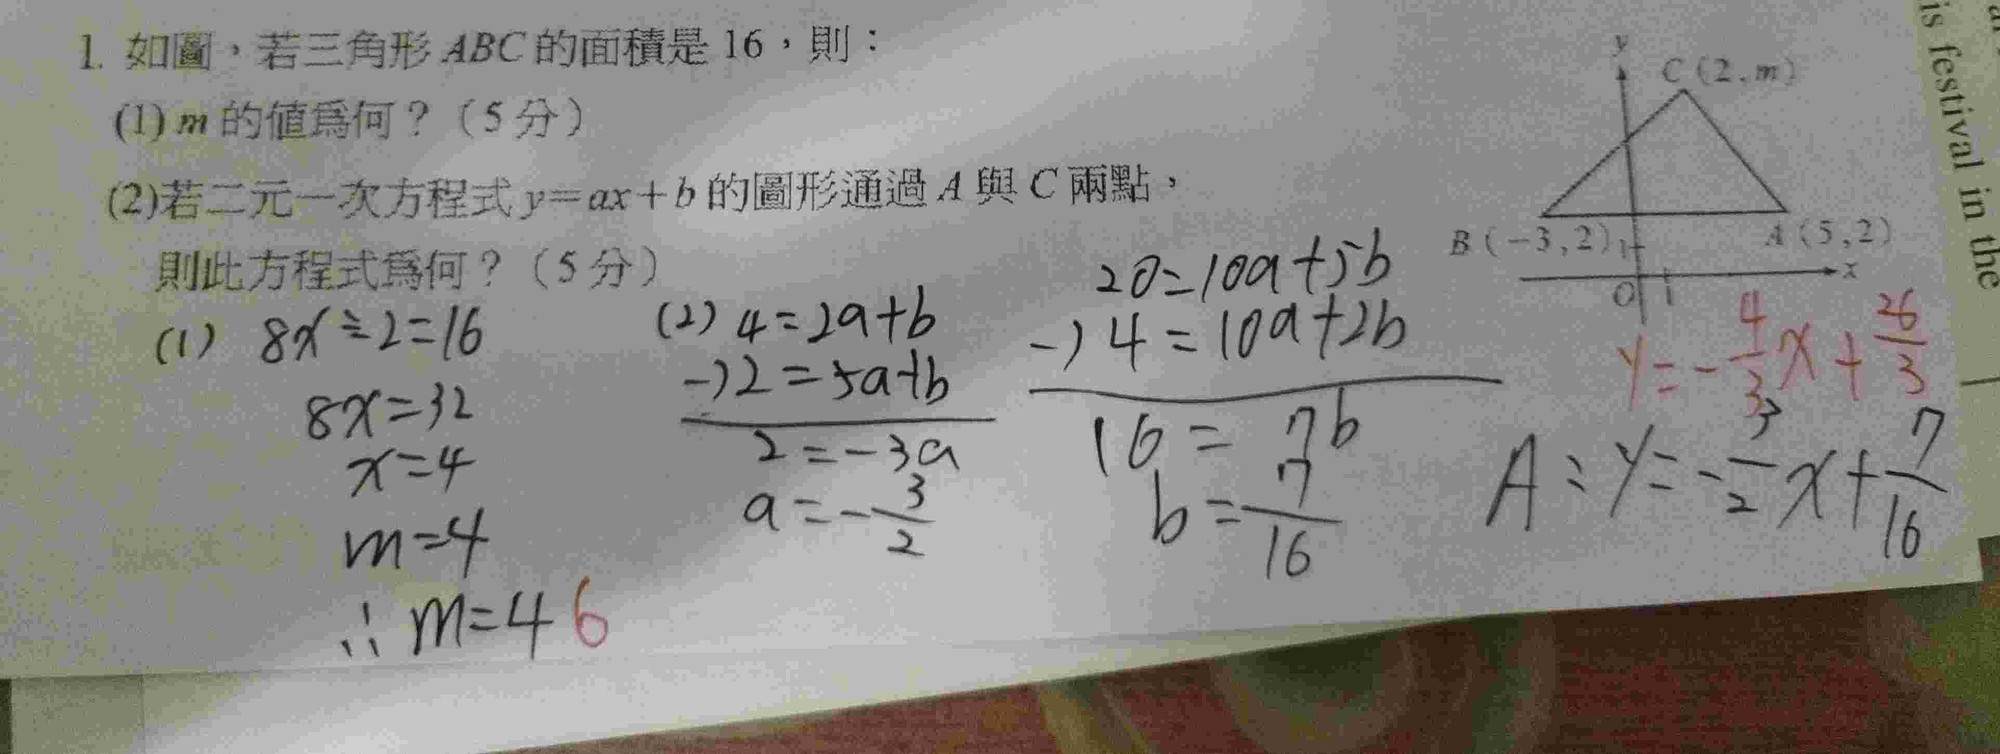 1. 如圖，若三角形ABC的面積是16，則：
(1) m 的值為何？（5分）
(2)若二元一次方程式y=ax+b的圖形通過A與C兩點，
則此方程式為何？（5分）
y
C(2,m)
B(-3,2)
1
A(5,2)
O
1
x
(1) 8x÷2=16
8x=32
x=4
m=4
∴m=4 6
(2) 4=2a+b
-)2=5a+b
2=-3a
a=-3/2
20=10a+5b
-)4=10a+2b
16=7b
b=7/16
y=-4/3x+26/3
A:y=-3/2x+7/16
is festival in the